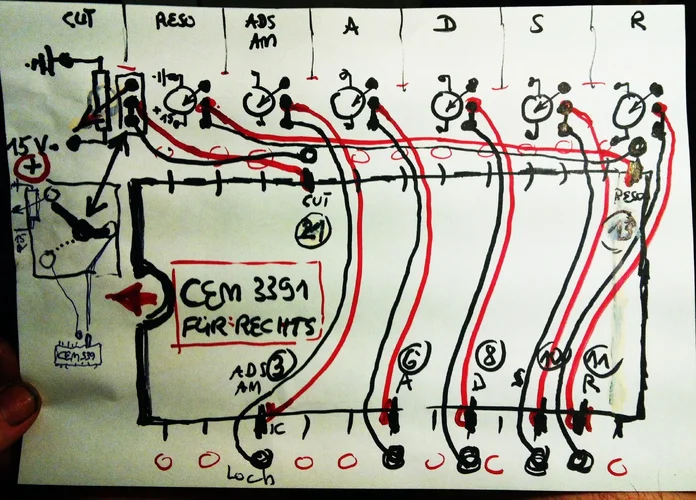 CUT RESO ADS A D S R
AM
+15
15V
+
CUT
RESO
21
13
CEM 3391
FÜR: RECHTS
CEM339
ADS 5 6 8 10 11
AM A D S R
IC
Loch